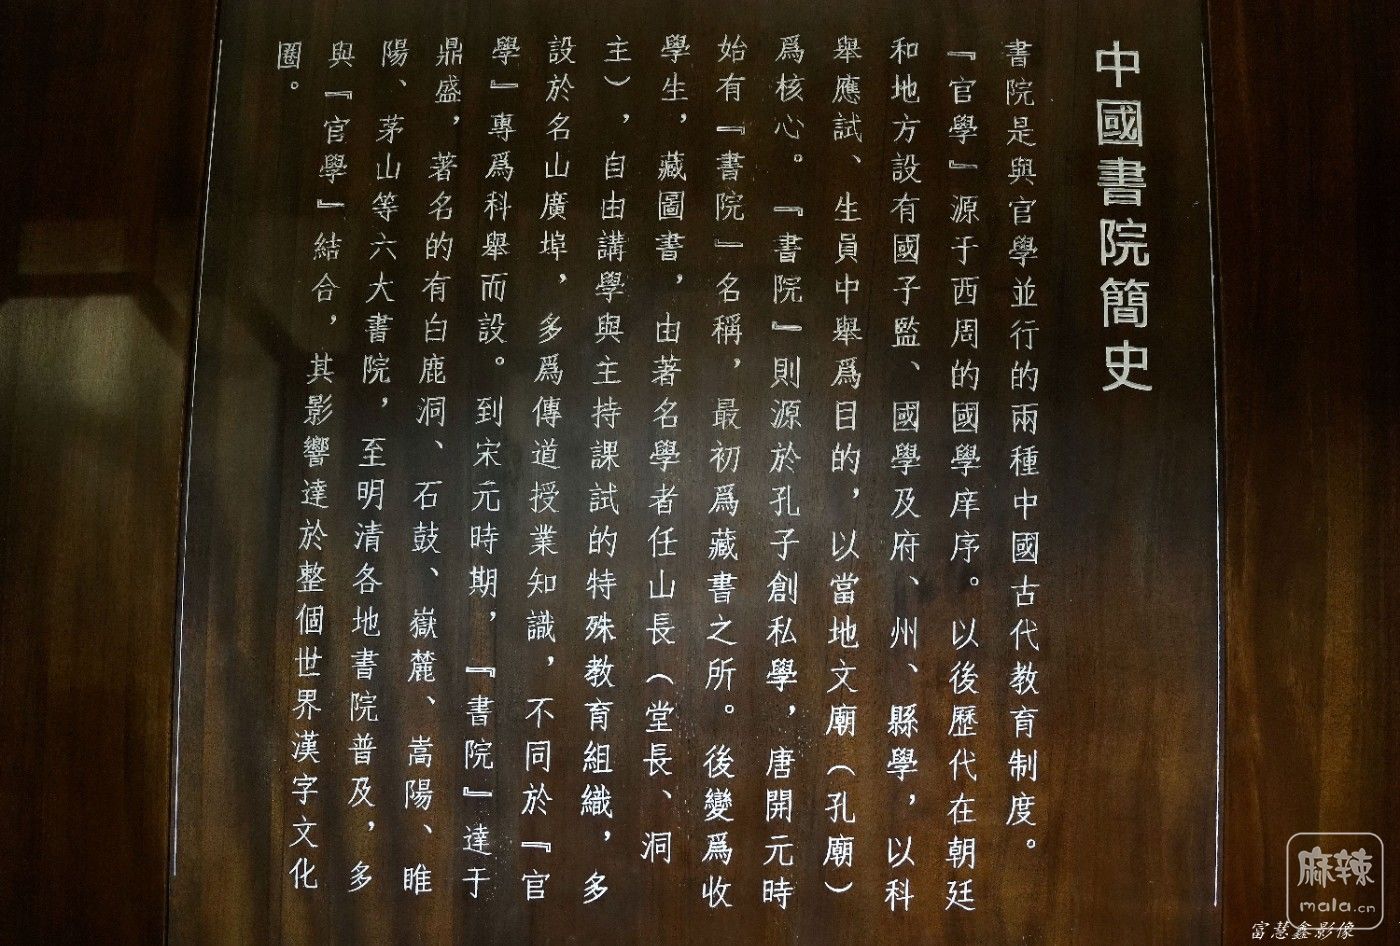 中國書院簡史
書院是與官學並行的兩種中國古代教育制度。
『官學』源于西周的國學庠序。以後歷代在朝廷
和地方設有國子監、國學及府、州、縣學，以科
舉應試、生員中舉爲目的，以當地文廟（孔廟）
爲核心。『書院』則源於孔子創私學，唐開元時
始有『書院』名稱，最初爲藏書之所。後變爲收
學生，藏圖書，由著名學者任山長（堂長、洞
主），自由講學與主持課試的特殊教育組織，多
設於名山廣埠，多爲傳道授業知識，不同於『官
學』專爲科舉而設。到宋元時期，『書院』達于
鼎盛，著名的有白鹿洞、石鼓、嶽麓、嵩陽、睢
陽、茅山等六大書院，至明清各地書院普及，多
與『官學』結合，其影響達於整個世界漢字文化
圈。
麻辣
mala.cn
富慧鑫影像